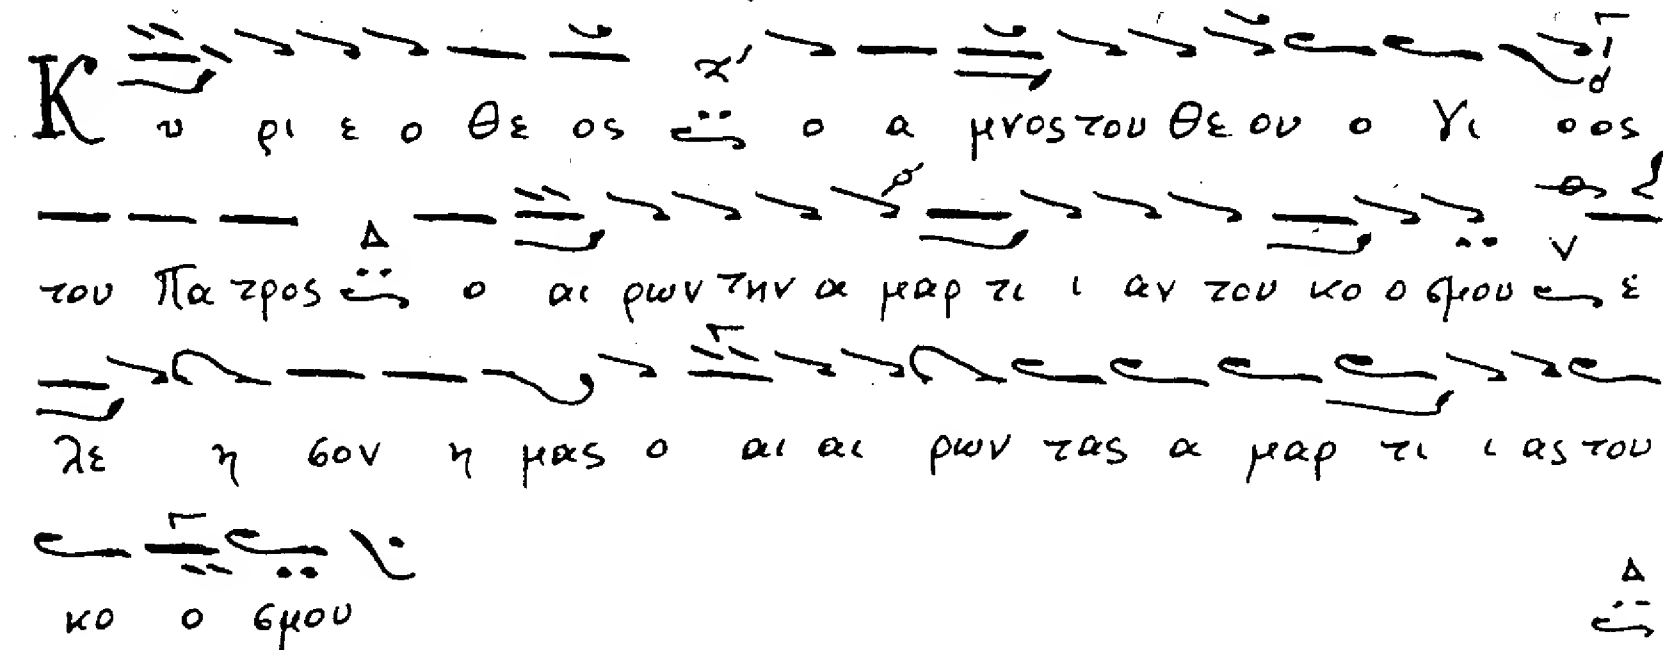 Κυ ρι ε ο Θε ος ο α μνος του Θε ου ο Υι ο ος
του Πα τρος ο αι ρων την α μαρ τι ι αν του κο ο σμου ε
λε η σον η μας ο αι αι ρων τας α μαρ τι ι ας του
κο ο σμου